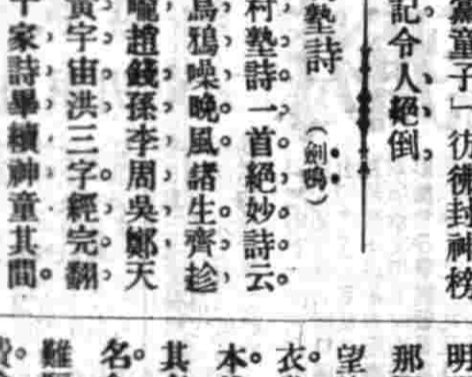 黨童子」彷彿封神榜
記令人絕倒。
塾詩 (劍鴨)
村塾詩一首絕妙詩云。
烏鴉噪晚風。諸生齊趁
趙錢孫李周吳鄭。天
黃宇宙洪。三字經完翻
千家詩畢續神童。其間
明
那
望
衣。
本
其
名。
難